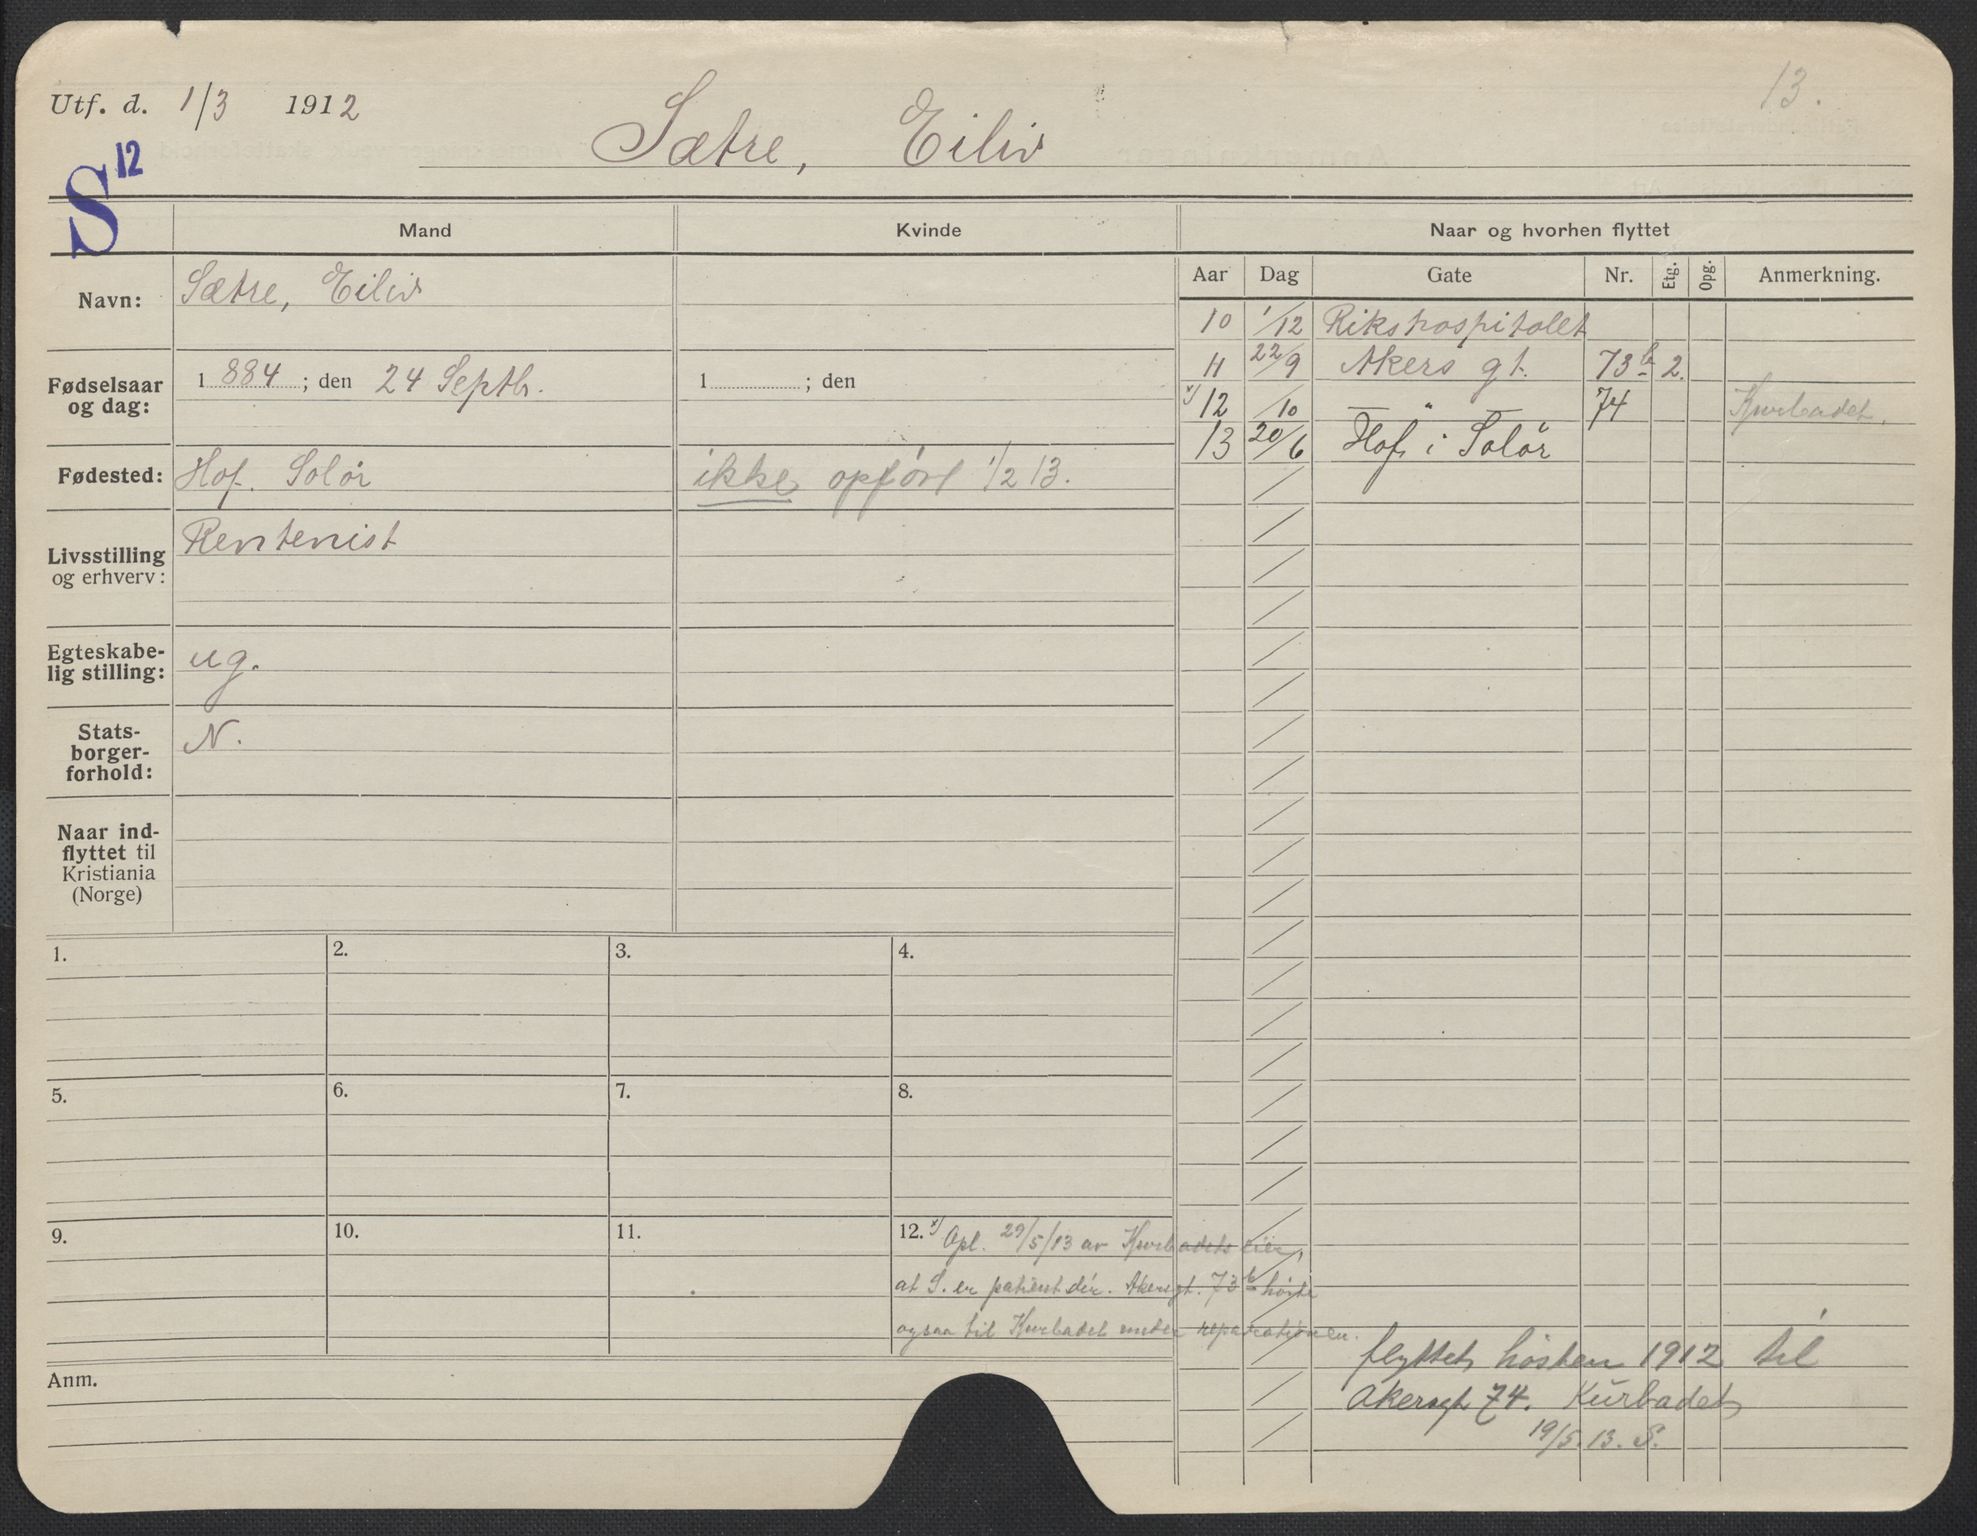 Utf. d. 1/3 1912
13.
S 12
Sætre, Eiliv
Mand
Kvinde
Naar og hvorhen flyttet
Aar Dag Gate Nr. Etg. Opg. Anmerkning.
Navn: Sætre, Eiliv
10 1/12 Rikshospitalet
11 22/9 Akers gt. 73b 2.
Fødselsaar
og dag:
1884; den 24 Septbr.
1 ; den
x) 12 /10 — " — 74 Kurbadet.
13 20/6 Hof i Solør
Fødested: Hof. Solør
ikke opført 1/2 13.
Livsstilling
og erhverv:
Rentenist
Egteskabe-
lig stilling:
ug.
Stats-
borger-
forhold:
N.
Naar ind-
flyttet til
Kristiania
(Norge)
1. 2. 3. 4.
5. 6. 7. 8.
9. 10. 11. 12.
x) Opl. 29/5/13 av Kurbadets eier,
at S. er patient dér. Akersgt. 73b hørte
ogsaa til Kurbadet under reparationen.
flyttet høsten 1912 til
Akersgt 74. Kurbadet
19/5.13. S.
Anm.